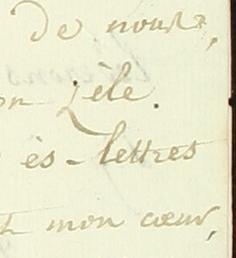 de nous,
zèle.
ès-lettres
mon cœur,